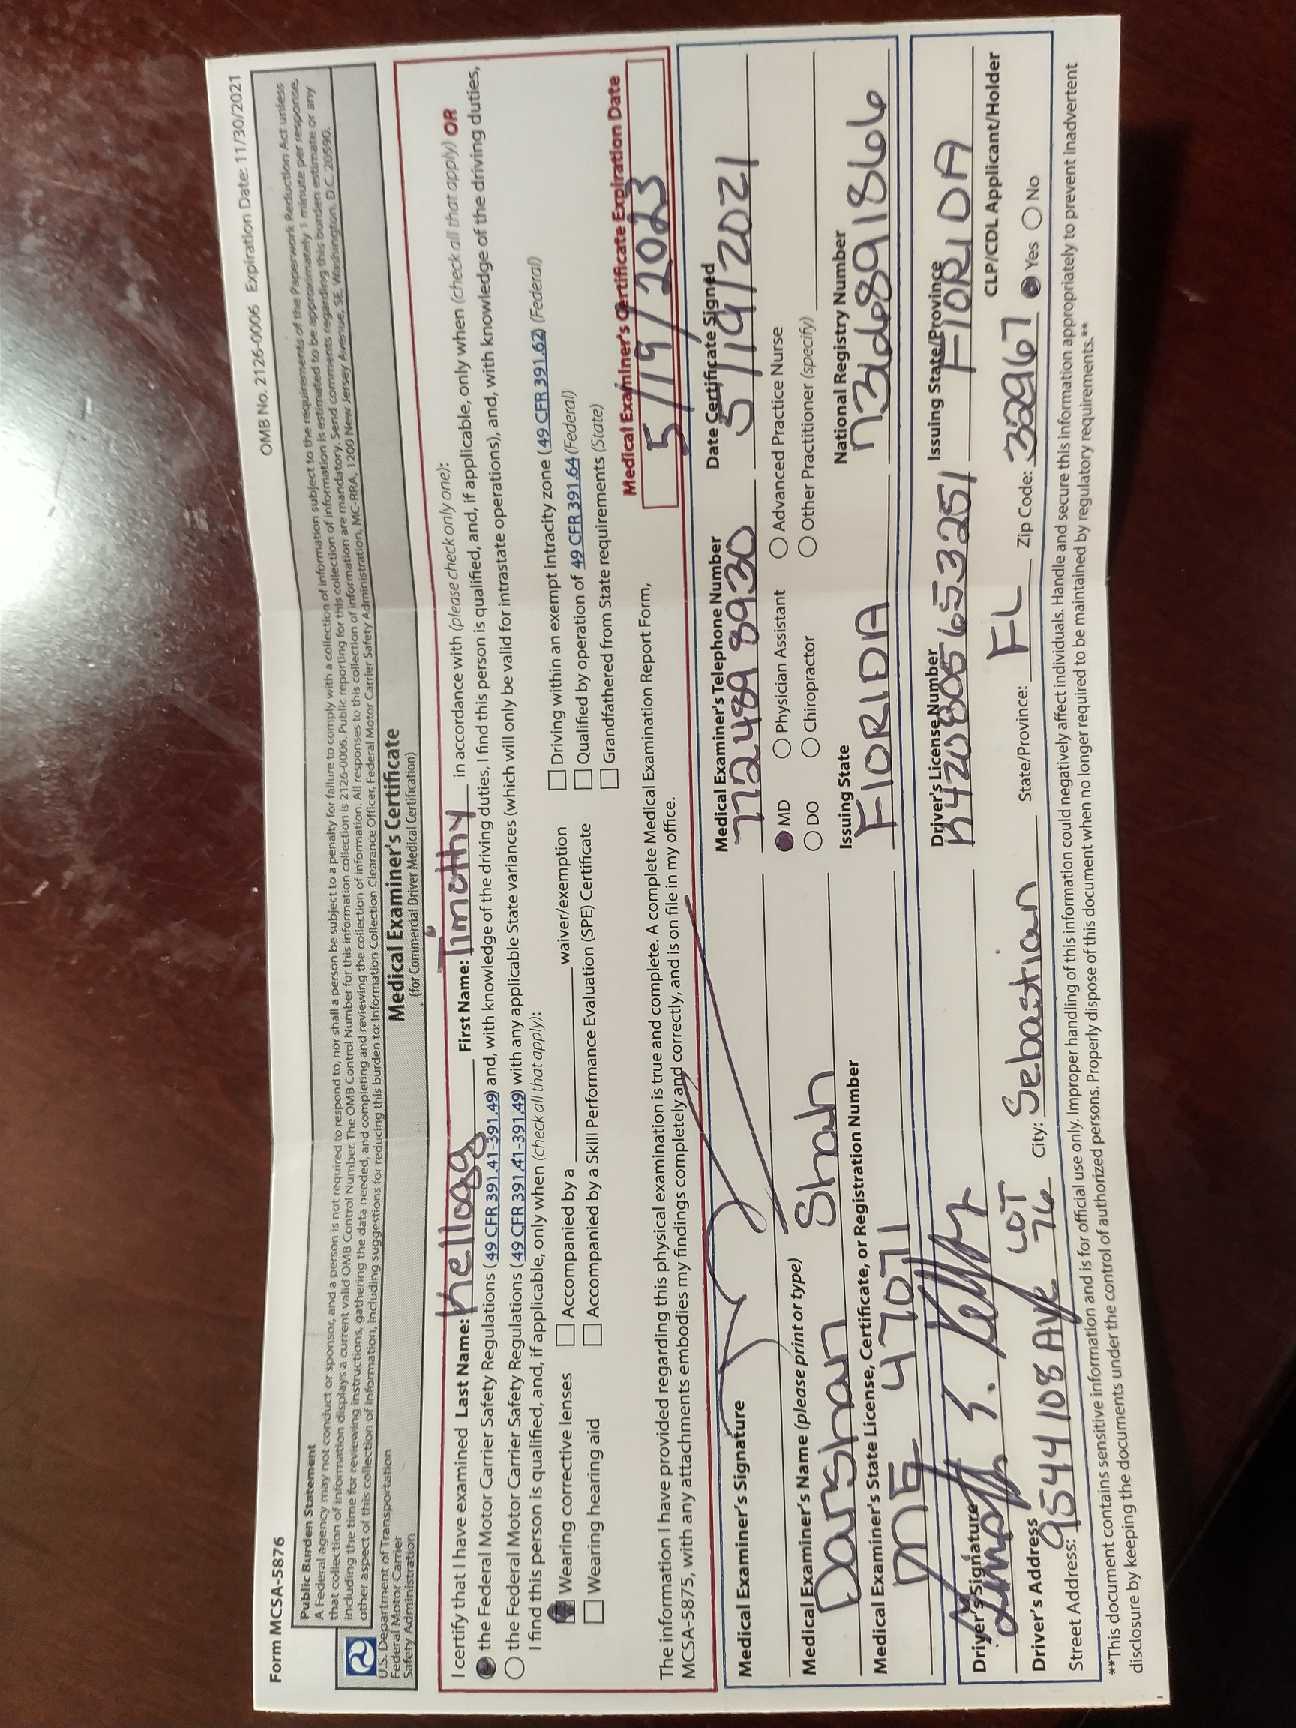 Form MCSA-5876
OMB No. 2126-0006 Expiration Date: 11/30/2021
Public Burden Statement
A Federal agency may not conduct or sponsor, and a person is not required to respond to, nor shall a person be subject to a penalty for failure to comply with a collection of information subject to the requirements of the Paperwork Reduction Act unless
that collection of information displays a current valid OMB Control Number. The OMB Control Number for this information collection is 2126-0006. Public reporting for this collection of information is estimated to be approximately 1 minute per response,
including the time for reviewing instructions, gathering the data needed, and completing and reviewing the collection of information. All responses to this collection of information are mandatory. Send comments regarding this burden estimate or any
other aspect of this collection of information, including suggestions for reducing this burden to: Information Collection Clearance Officer, Federal Motor Carrier Safety Administration, MC-RRA, 1200 New Jersey Avenue, SE, Washington, D.C. 20590.
U.S. Department of Transportation
Federal Motor Carrier
Safety Administration
Medical Examiner's Certificate
(for Commercial Driver Medical Certification)
I certify that I have examined Last Name: Kellogg First Name: Timothy in accordance with (please check only one):
the Federal Motor Carrier Safety Regulations (49 CFR 391.41-391.49) and, with knowledge of the driving duties, I find this person is qualified, and, if applicable, only when (check all that apply) OR
the Federal Motor Carrier Safety Regulations (49 CFR 391.41-391.49) with any applicable State variances (which will only be valid for intrastate operations), and, with knowledge of the driving duties,
I find this person is qualified, and, if applicable, only when (check all that apply):
Wearing corrective lenses Accompanied by a waiver/exemption Driving within an exempt intracity zone (49 CFR 391.62) (Federal)
Wearing hearing aid Accompanied by a Skill Performance Evaluation (SPE) Certificate Qualified by operation of 49 CFR 391.64 (Federal)
Grandfathered from State requirements (State)
Medical Examiner's Certificate Expiration Date
5/19/2023
The information I have provided regarding this physical examination is true and complete. A complete Medical Examination Report Form,
MCSA-5875, with any attachments embodies my findings completely and correctly, and is on file in my office.
Medical Examiner's Signature Medical Examiner's Telephone Number Date Certificate Signed
772 489 8930 5/19/2021
Medical Examiner's Name (please print or type) MD Physician Assistant Advanced Practice Nurse
Darshan Shah DO Chiropractor Other Practitioner (specify)
Medical Examiner's State License, Certificate, or Registration Number Issuing State National Registry Number
ME 47071 FlORIDA 7316891866
Driver's Signature Driver's License Number Issuing State/Province
Timothy S. Kellogg K420805653251 FlORIDA
Driver's Address CLP/CDL Applicant/Holder
Street Address: 9544 108 Ave LOT 76 City: Sebastian State/Province: FL Zip Code: 32967 Yes No
**This document contains sensitive information and is for official use only. Improper handling of this information could negatively affect individuals. Handle and secure this information appropriately to prevent inadvertent
disclosure by keeping the documents under the control of authorized persons. Properly dispose of this document when no longer required to be maintained by regulatory requirements.**